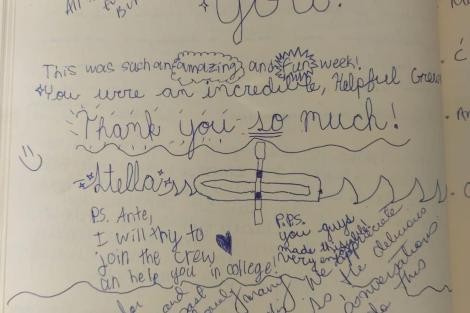 All
But
you!
This was such an amazing and fun week!
You were an incredible, Helpful Crew
Thank you so much!
Stella
P.S. Ante,
I will try to
join the crew
an help you in college!
P.P.S.
you guys
made this
very enjoyable!
We appreciate
many
and
is the delicious
conversations.
this